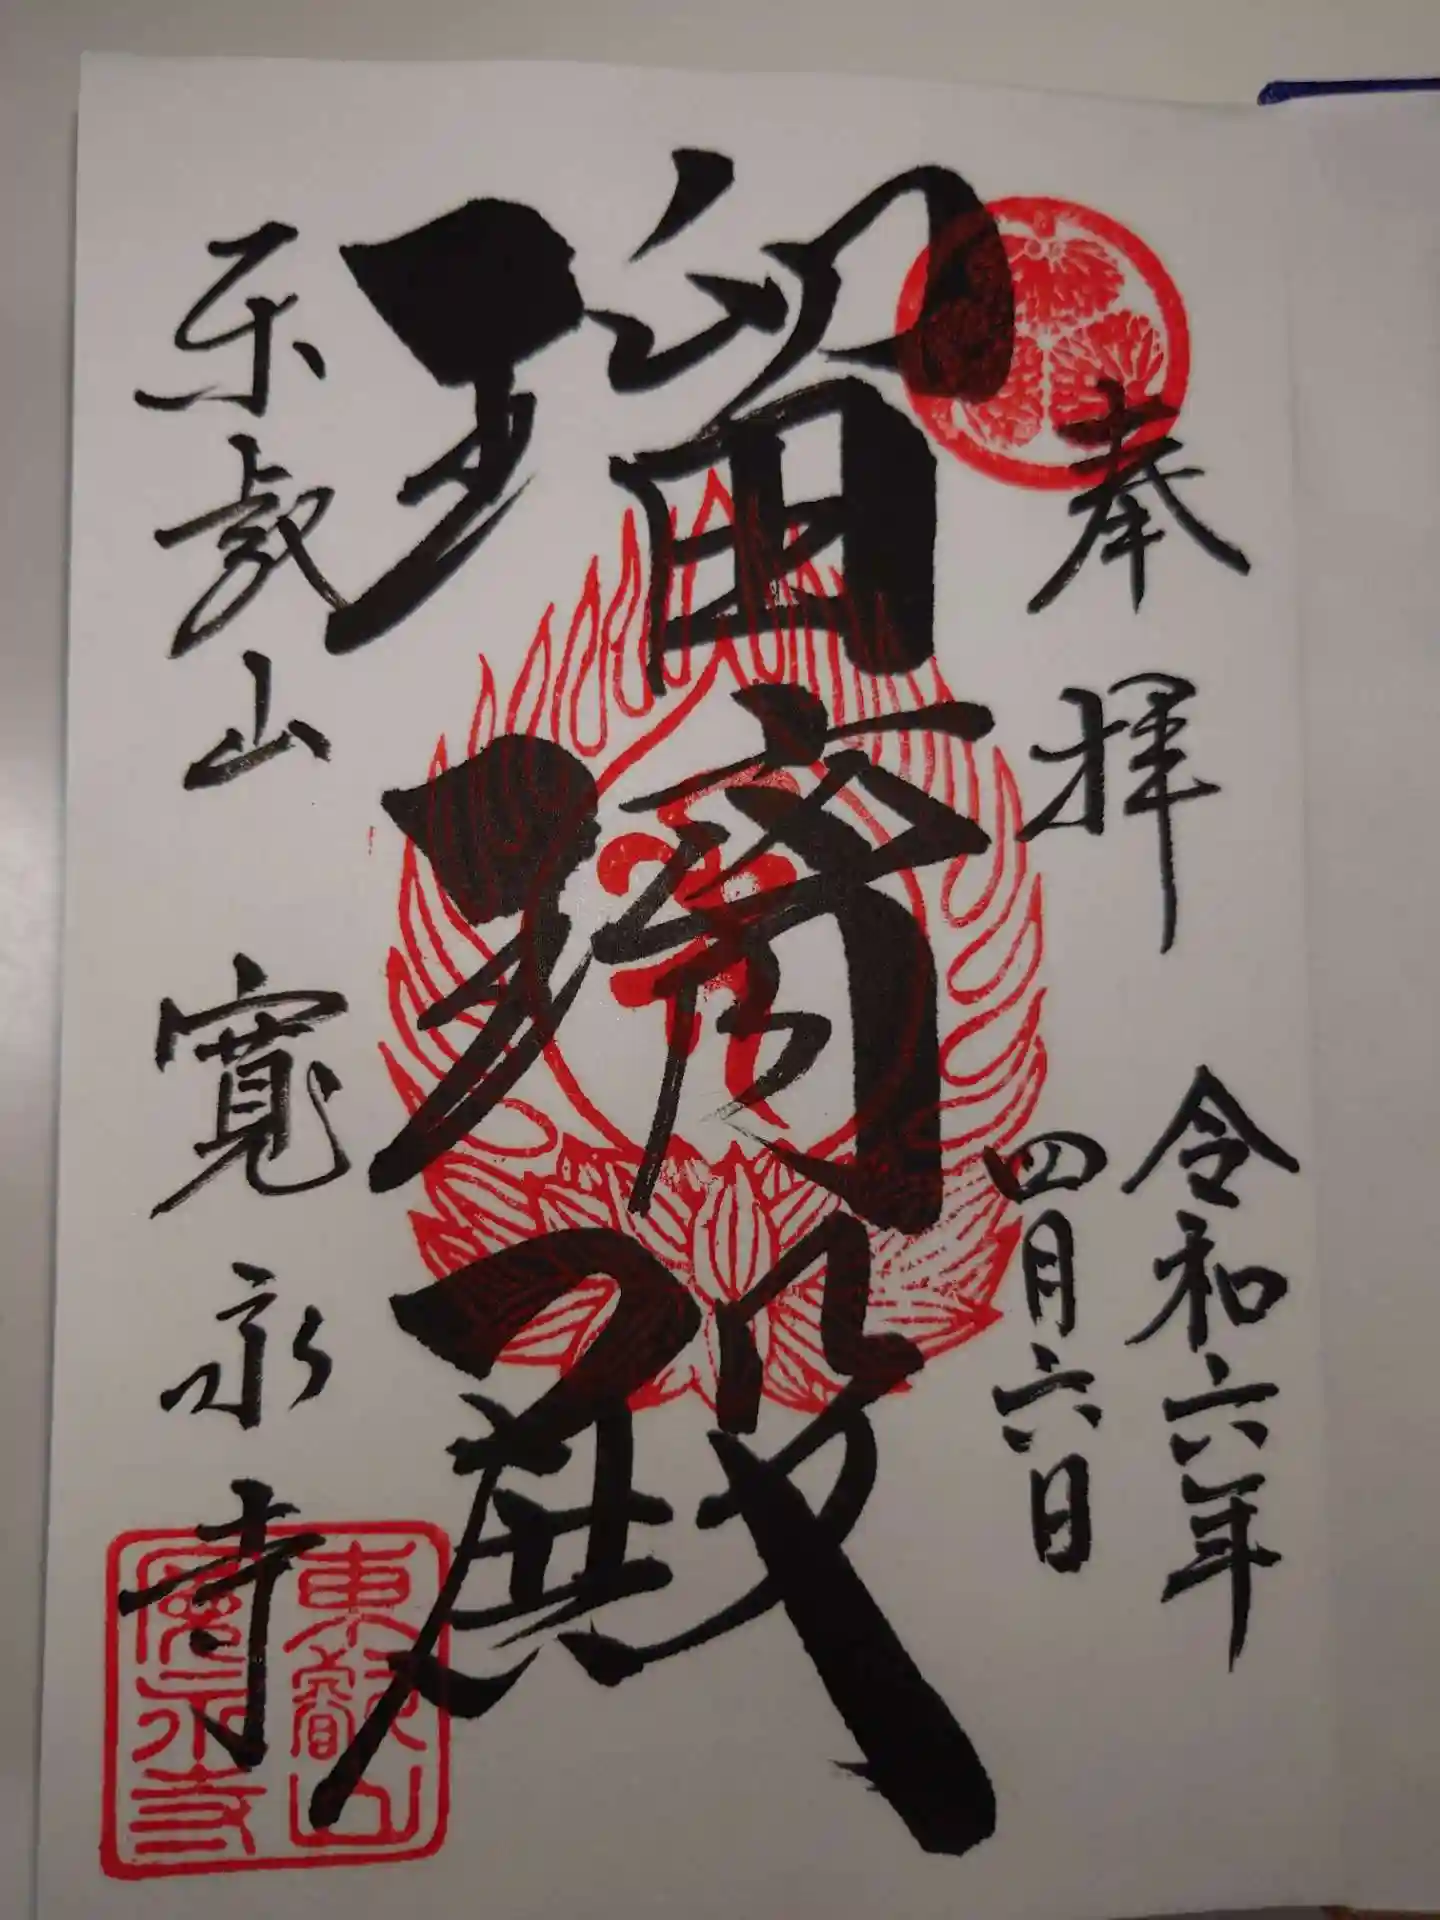 奉拝
令和六年
四月六日
瑠璃殿
东叡山
寛永寺
東叡山
寛永寺